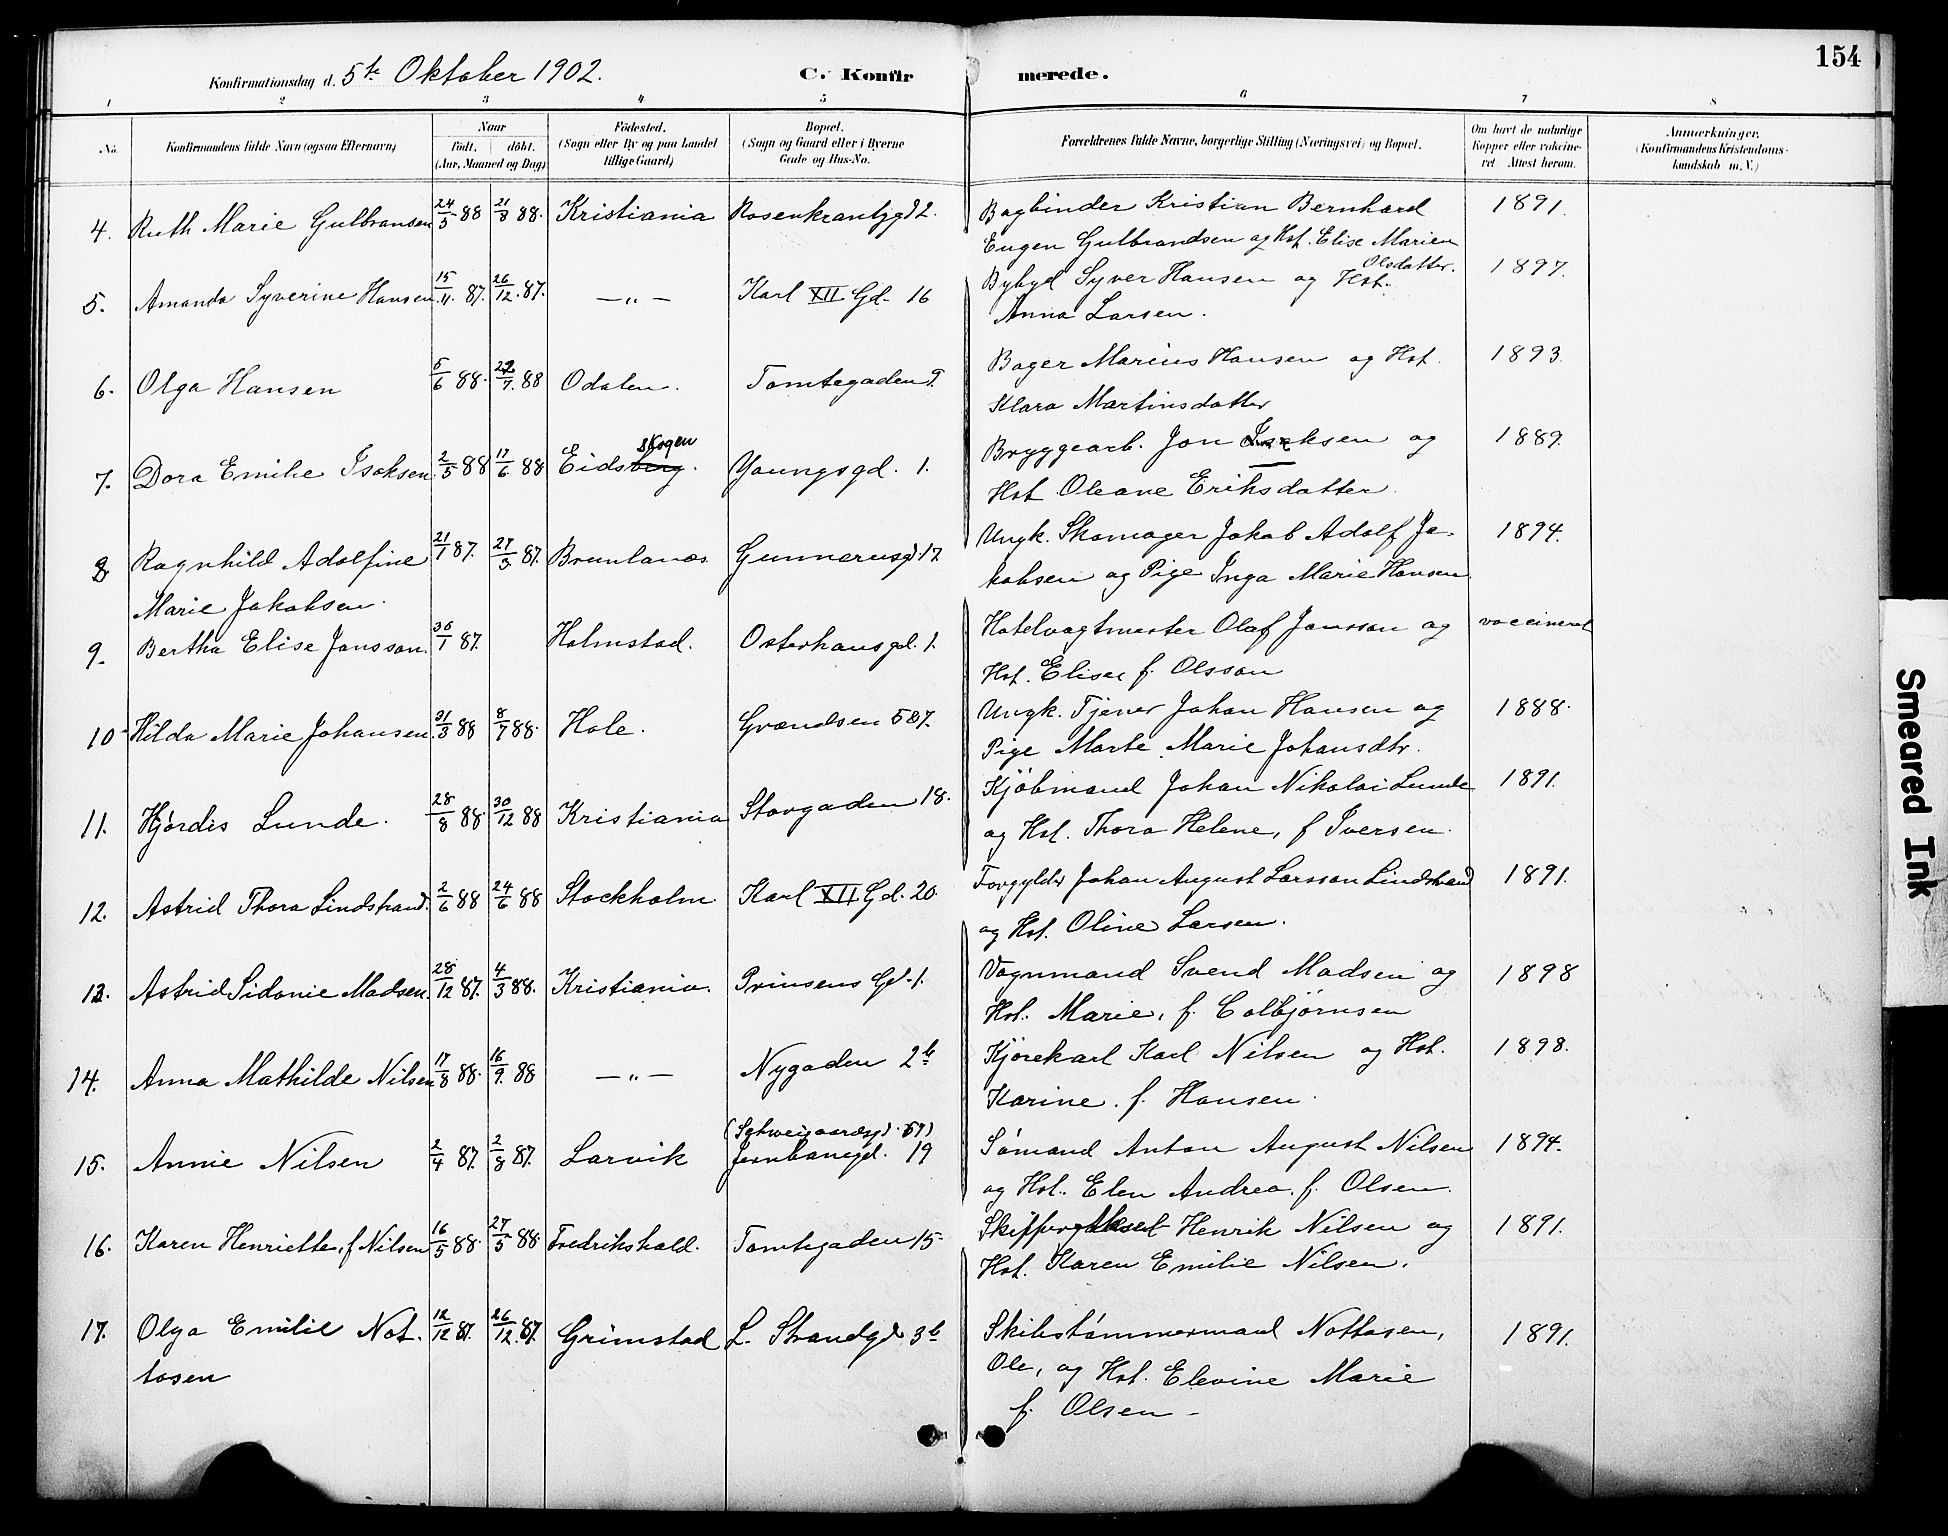 154
Konfirmationsdag d. 5te Oktober 1902. C. Konfirmerede.
1 2 3 4 5 6 7 8
No. Konfirmandens fulde Navn (ogsaa Efternavn) Naar Födt. döbt. (Aar, Maaned og Dag) Födested. (Sogn eller By og paa Landet tillige Gaard) Bopæl. (Sogn og Gaard eller i Byerne Gade og Hus-No. Forældrenes fulde Navne, borgerlige Stilling (Næringsvei) og Bopæl. Om havt de naturlige Kopper eller vakcineret. Attest herom. Anmærkninger. (Konfirmandens Kristendomskundskab m. V.)
4. Ruth Marie Gulbransen 24/5 88 21/8 88. Kristiania Rosenkrantzgd 2. Bogbinder Kristian Bernhard 1891.
Eugen Gulbrandsen og Hst. Elise Marien
Olsdatter.
5. Amanda Syverine Hansen 15/11 87. 26/12 87. —„— Karl XII Gd. 16 Bybyd Syver Hansen og Hst. 1897.
Anna Larsen.
6. Olga Hansen 5/6 88. 22/7 88 Odalen. Tomtegaden 9. Bager Marius Hansen og Hst. 1893.
Klara Martinsdatter
7. Dora Emilie Isaksen 2/5 88 17/6 88 Eidsberg skogen. Youngsgd. 1. Bryggearb. Jon Isaksen og 1889.
Hst Oleane Eriksdatter.
8 Ragnhild Adolfine 21/1 87. 27/3 87. Brunlanæs Gunnerusgd 17. Ungk. Skomager Jakob Adolf Ja- 1894.
Marie Jakobsen. kobsen og Pige Inga Marie Hansen
9. Bertha Elise Jansson. 30/1 87. Halmstad. Osterhausgd. 1. Hotelvagtmester Olaf Jansson og vaccineret
Hst. Elise f. Olsson
10 Hilda Marie Johansen 31/3 88 8/7 88. Hole. Grændsen 587. Ungk. Tjener Johan Hansen og 1888.
Pige Marte Marie Johansdtr.
11. Hjördis Lunde. 28/8 88 30/12 88 Kristiania Storgaden 18. Kjöbmand Johan Nikolai Lunde 1891.
og Hst. Thora Helene, f Iversen.
12. Astrid Thora Lindstrand. 2/6 88 24/6 88 Stockholm Karl XII Gd. 20 Forgylder Johan August Larsson Lindstrand 1891.
og Hst. Oline Larsen.
13. Astrid Sidonie Madsen. 28/12 87. 4/3 88. Kristiania. Prinsens Gd. 1. Vognmand Svend Madsen og 1898
Hst. Marie, f. Colbjørnsen
14. Anna Mathilde Nilsen 17/8 88. 16/9 88 —„— Nygaden 2b Kjørekarl Karl Nilsen og Hst. 1898.
Karine. f. Hansen.
(Schweigaardsgd. 57)
15. Annie Nilsen 2/4 87. 2/8 87. Larvik Jernbanegd. 19 Sømand Anton August Nilsen 1894.
og Hst. Elen Andrea. f. Olsen.
16. Karen Henriette, f Nilsen 16/5 88. 27/5 88. Fredrikshald. Tomtegaden 15 Henrik Nilsen og 1891.
Hst. Karen Emilie Nilsen.
17. Olga Emilie Not- 12/12 87. 26/12 87. Grimstad L. Strandgd 3b Skibstömmermand Nottosen, 1891.
tosen Ole, og Hst. Elevine Marie
f. Olsen
Smeared Ink